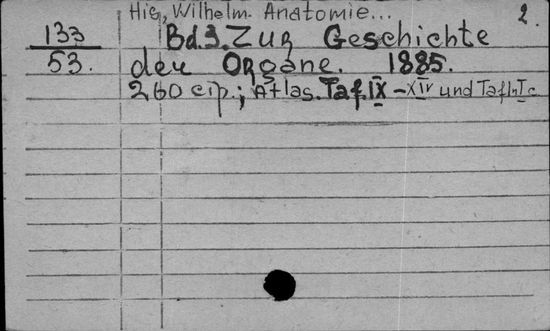 His, Wilhelm. Anatomie... 2.
133 Bd.3. Zur Geschichte
53. der Organe. 1885.
260 стр.; Атлас. Taf. IX - XIV und Taf.